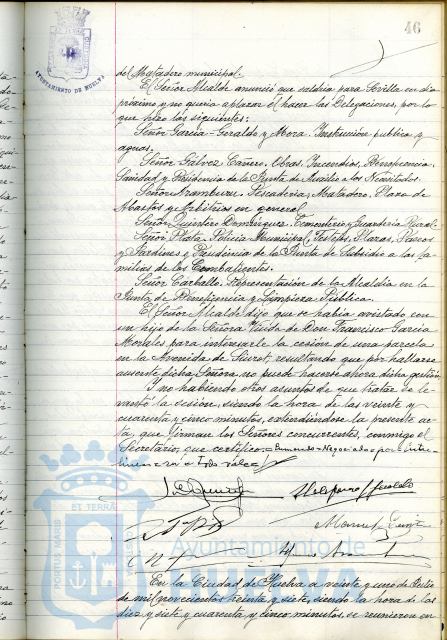 46
AYUNTAMIENTO DE HUELVA
del Matadero municipal.
El Señor Alcalde anunció que saldria para Sevilla en dia
próximo y no queria aplazar el hacer las Delegaciones, por lo
que hizo las siguientes:
Señor Garcia-Geraldo y Mora. Instrucción publica y
aguas.
Señor Gálvez Cañero. Obras, Incendios, Beneficencia,
Sanidad y Presidencia de la Junta de Auxilio a los Necesitados.
Señor Aramburu. Pescaderia, Matadero, Plaza de
Abastos y Arbitrios en general.
Señor Quintero Dominguez. Cementerio y Guarderia Rural.
Señor Plata. Policia Municipal, Festejos, Plazas, Paseos
y Jardines y Presidencia de la Junta de Subsidio a las fa-
milias de los Combatientes.
Señor Carballo. Representación de la Alcaldia en la
Junta de Beneficencia y Limpieza Pública.
El Señor Alcalde dijo que se habia avistado con
un hijo de la Señora Viuda de Don Francisco Garcia
Morales para interesarle la cesión de una parcela
en la Avenida de Siurot, resultando que por hallarse
ausente dicha Señora no puede hacerse ahora dicha gestión.
Y no habiendo otros asuntos de que tratar se le-
vantó la sesión, siendo la hora de las veinte y
cuarenta y cinco minutos, extendiéndose la presente ac-
ta, que firman los Señores concurrentes, conmigo el
Secretario, que certifico =
PORTUS MARIS ET TERRÆ
Ayuntamiento de
HUELVA
En la Ciudad de Huelva a veinte y uno de
de mil novecientos treinta y siete, siendo la hora de las
diez y siete y cuarenta y cinco minutos, se reunieron en